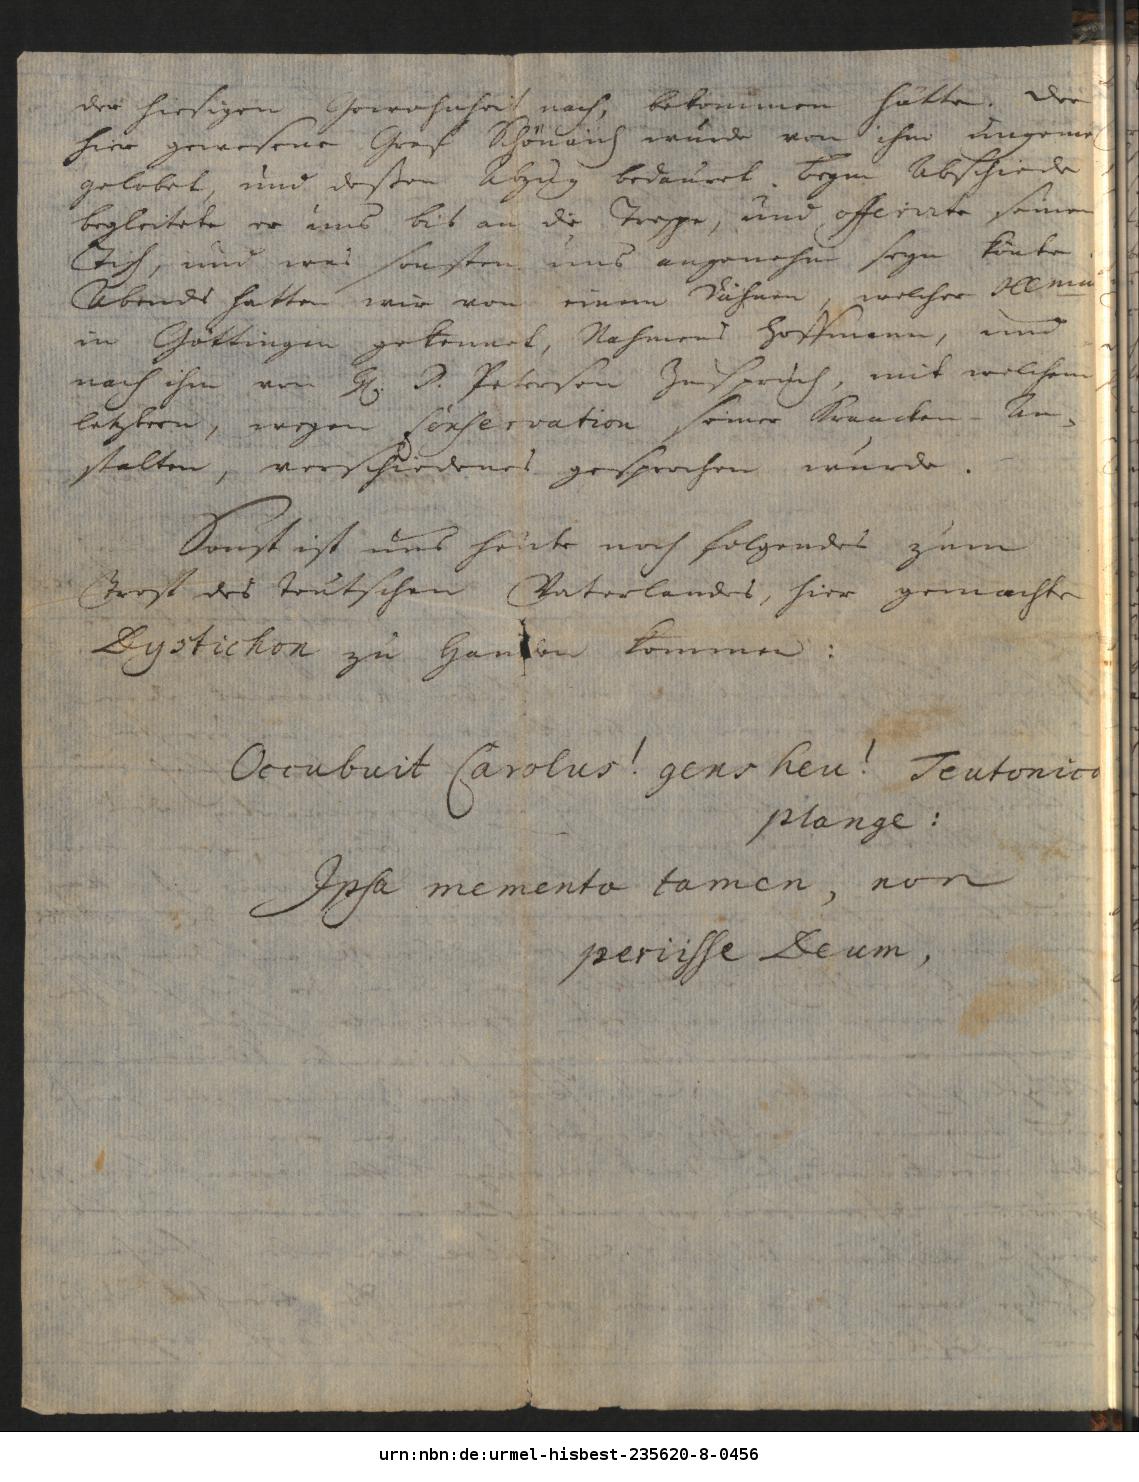 der hiesigen Gewohnheit nach, bekommen hätte. Der
hier gewesene Graf Schönaich wurde von ihm ungeme
gelobet, und deßen Abzug bedauret. Beym Abschiede
begleitete er uns bis an die Treppe, und offerirte seinen
Tisch, und was sonsten uns angenehm seyn könte.
Abends hatten wir von einem Dähnen, welcher
in Göttingen gekennet, Nahmens Hoffmann, und
nach ihm von H. D. Petersen Zuspruch, mit welchem
letztern, wegen Conservation seiner Krancken-An-
stalten, verschiedenes gesprochen wurde.
Sonst ist uns heute noch folgendes zum
Trost des Teutschen Vaterlandes, hier gemachte
Dystichon zu Handen kommen:
Occubuit Carolus! gens heu! Teutonica
plange:
Ipsa memento tamen, non
periisse Deum,
urn:nbn:de:urmel-hisbest-235620-8-0456